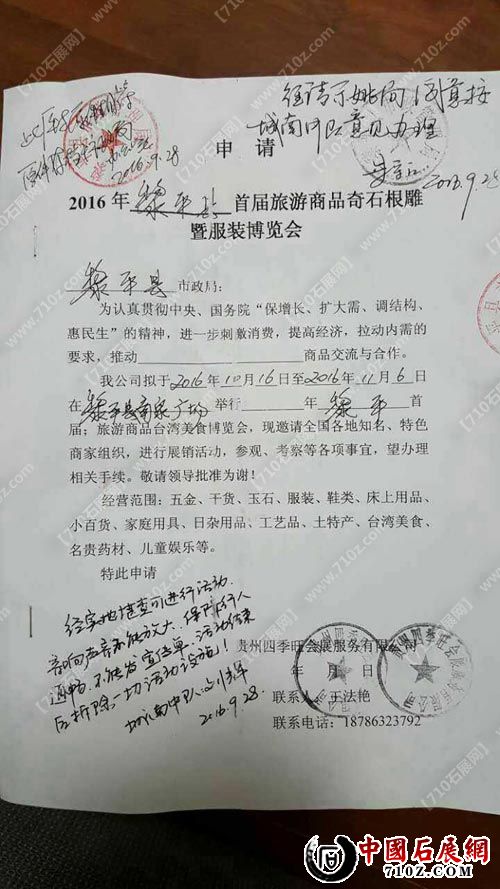 经请示姚局同意按
城南中队意见办理
2016.9.28
2016.9.28
申 请
2016年黎平县首届旅游商品奇石根雕
暨服装博览会
黎平县市政局：
为认真贯彻中央、国务院“保增长、扩大需、调结构、
惠民生”的精神，进一步刺激消费，提高经济，拉动内需的
要求，推动 商品交流与合作。
我公司拟于2016年10月16日至2016年11月6日
在黎平县 广场举行 年黎平首
届；旅游商品台湾美食博览会，现邀请全国各地知名、特色
商家组织，进行展销活动，参观、考察等各项事宜，望办理
相关手续。敬请领导批准为谢！
经营范围：五金、干货、玉石、服装、鞋类、床上用品、
小百货、家庭用具、日杂用品、工艺品、土特产、台湾美食、
名贵药材、儿童娱乐等。
特此申请
经实地堪查可进行活动.
音响声音不能放大、保障行人
通畅.不能发宣传单.活动结束
后拆除一切活动设施！
城南中队
2016.9.28.
贵州四季旺会展服务有限公司
年 月 日
联系人：王法艳
联系电话：18786323792
中国石展網
710z.com
【710石展网】
www.710z.com